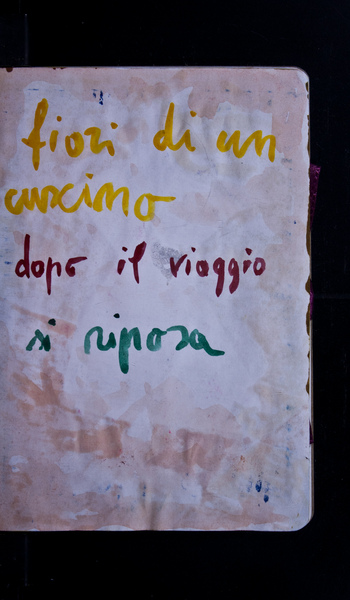 fiori di un
cuscino
dopo il viaggio
si riposa